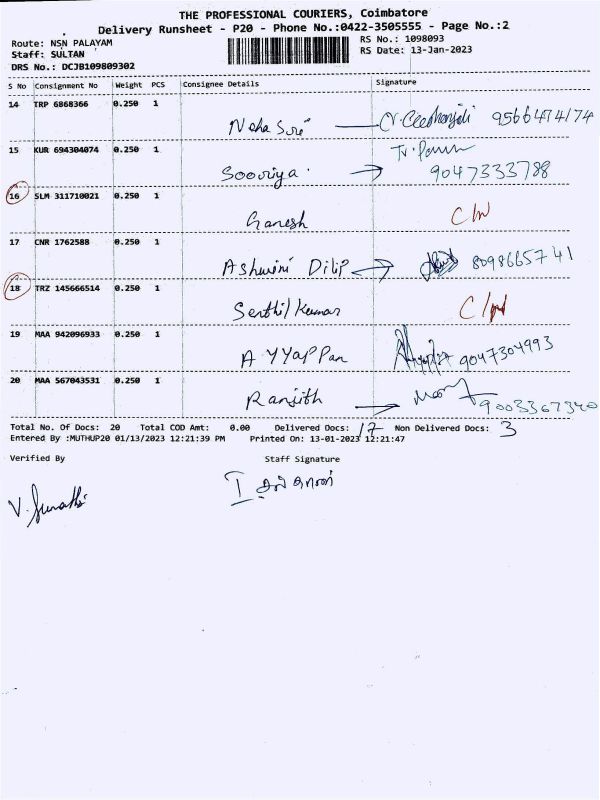 THE PROFESSIONAL COURIERS, Coimbatore
Delivery Runsheet - P20 - Phone No.:0422-3505555 - Page No.:2
Route: NSN PALAYAM
RS No.: 1098093
Staff: SULTAN
RS Date: 13-Jan-2023
DRS No.: DCJB109809302
S No Consignment No Weight PCS Consignee Details Signature
14 TRP 6868366 0.250 1
Neha Sri 9566474174
15 KUR 694304074 0.250 1
Sooriya 9047333788
16 SLM 311710021 0.250 1
Ganesh
17 CNR 1762588 0.250 1
Ashwini Dilip 8098665741
18 TRZ 145666514 0.250 1
Senthil Kumar
19 MAA 942096933 0.250 1
AYYapPan 9047304993
20 MAA 567043531 0.250 1
Ranjith 9003367340
Total No. Of Docs: 20 Total COD Amt: 0.00 Delivered Docs: 17 Non Delivered Docs: 3
Entered By :MUTHUP20 01/13/2023 12:21:39 PM Printed On: 13-01-2023 12:21:47
Verified By Staff Signature